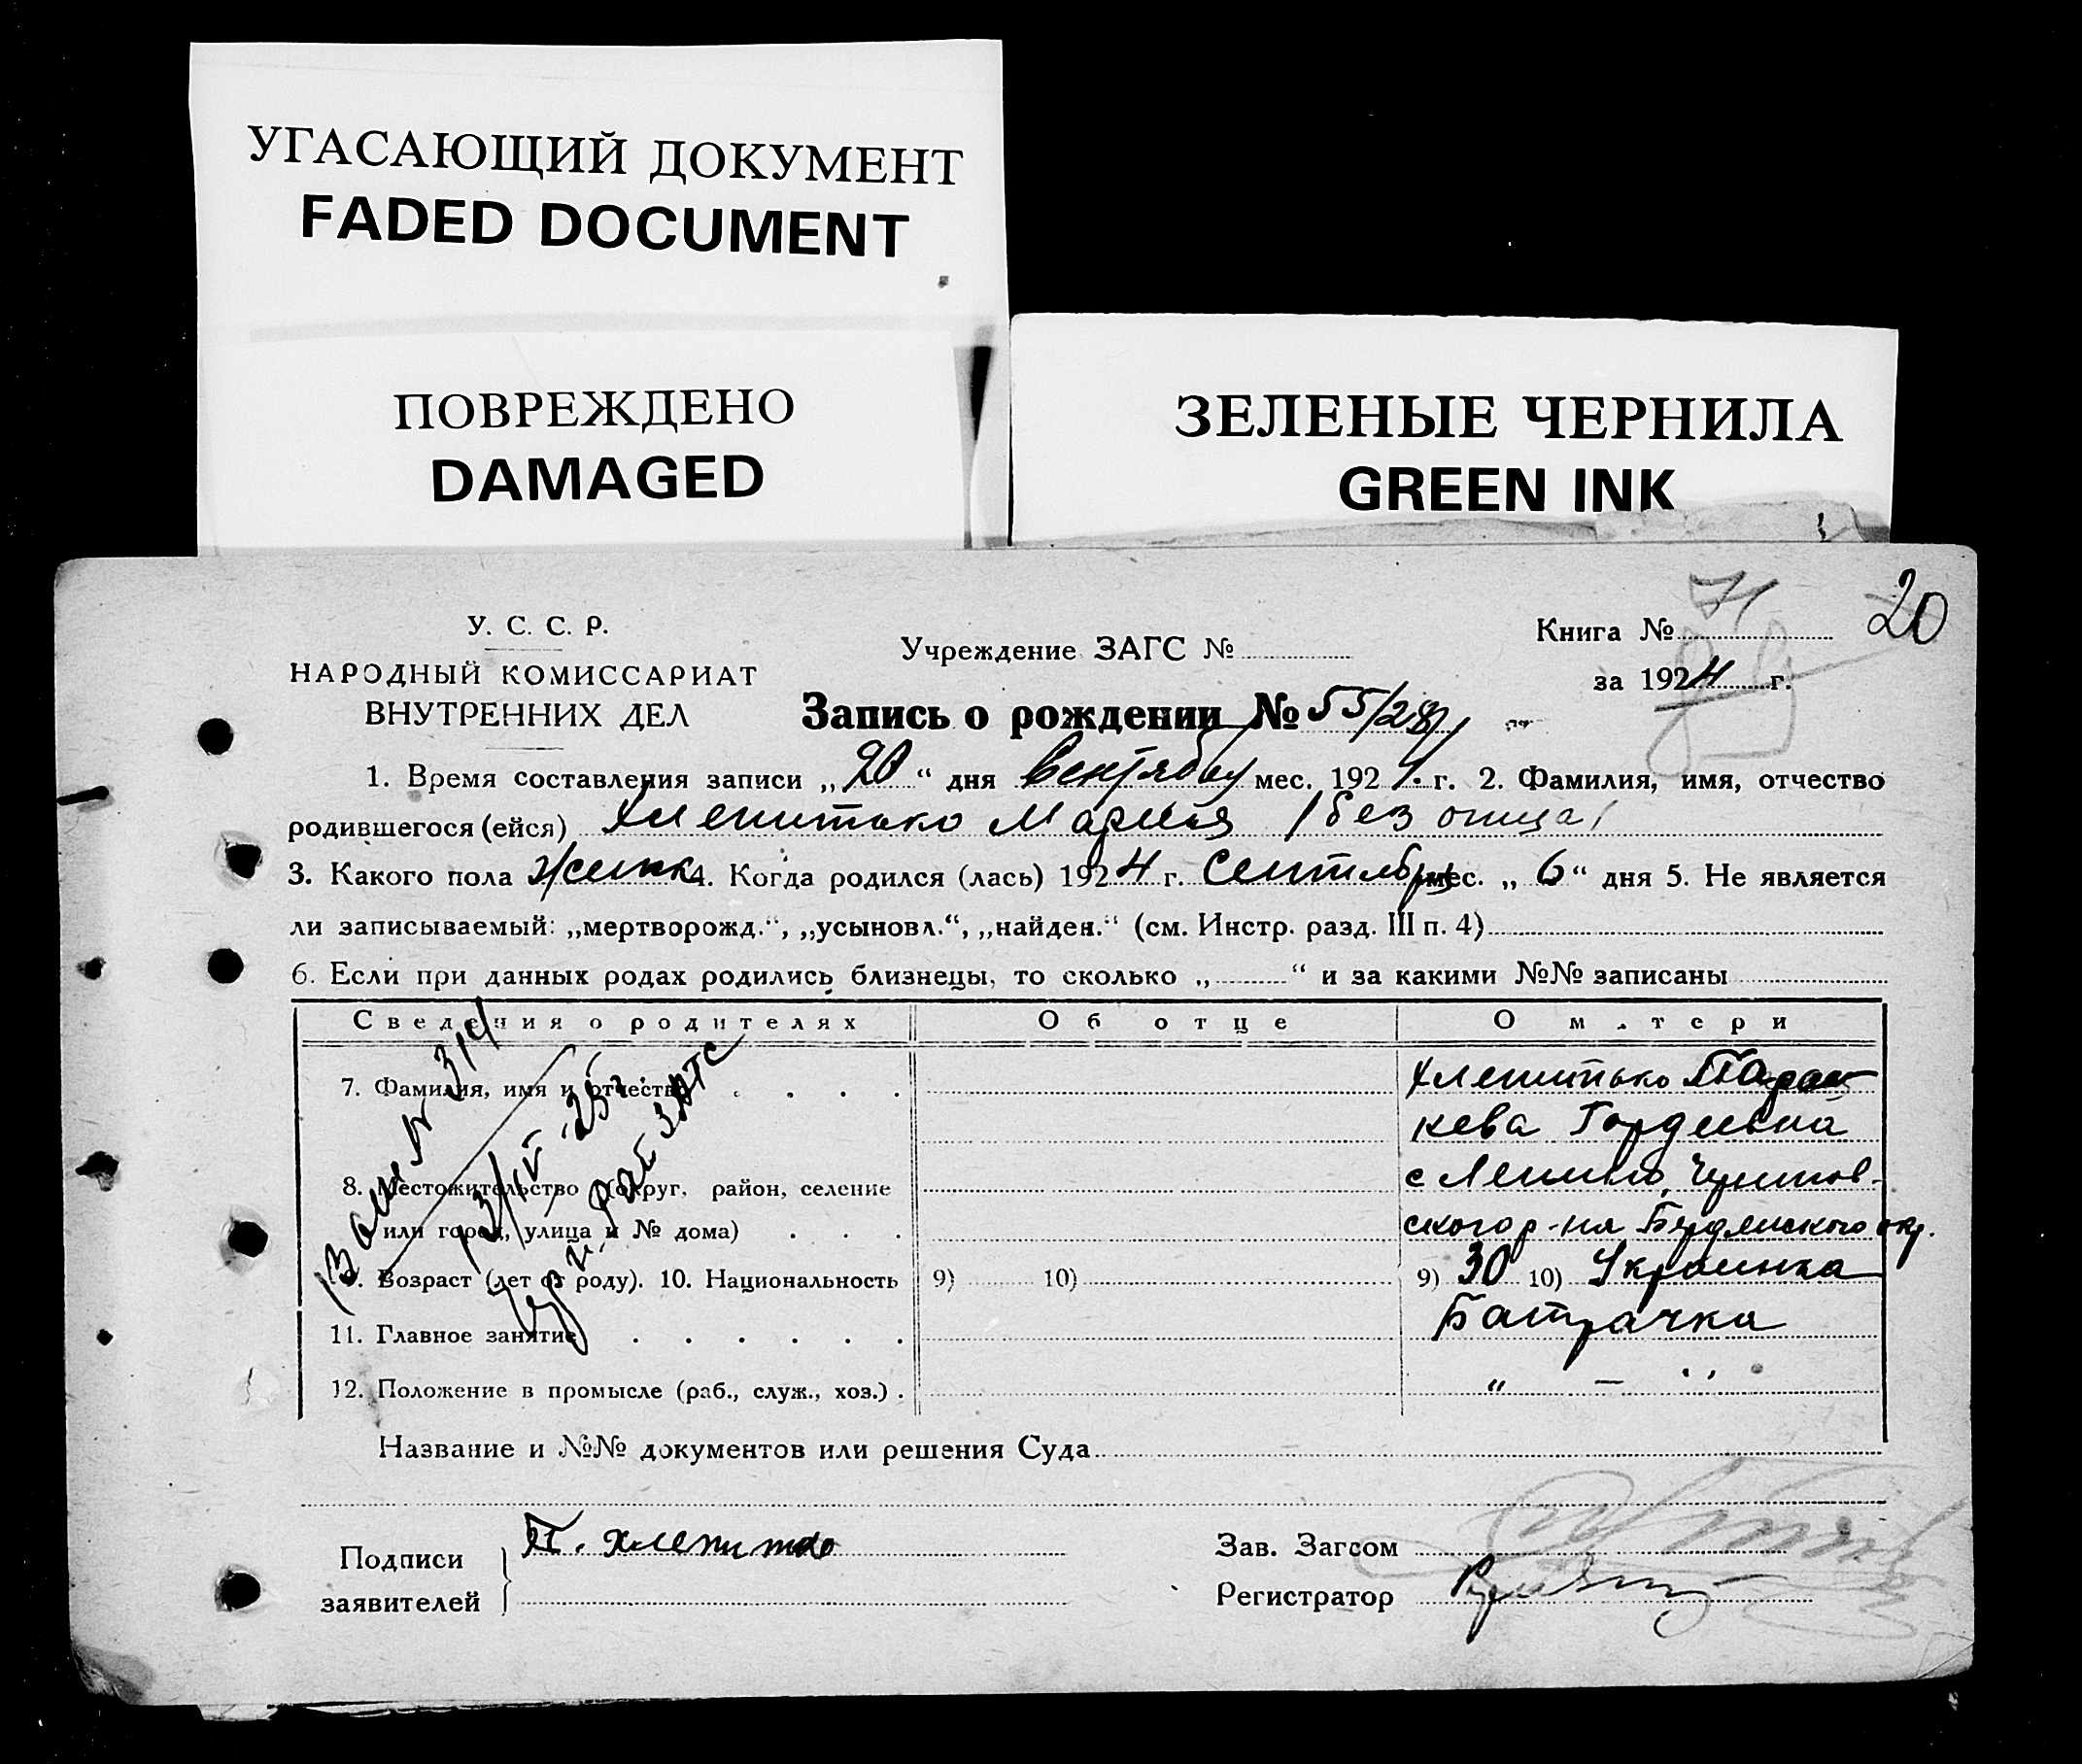 УГАСАЮЩИЙ ДОКУМЕНТ
FADED DOCUMENT
ПОВРЕЖДЕНО
DAMAGED
ЗЕЛЕНЫЕ ЧЕРНИЛА
GREEN INK
20
У. С. С. Р.
НАРОДНЫЙ КОМИССАРИАТ
ВНУТРЕННИХ ДЕЛ
Учреждение ЗАГС №
Книга № 71
за 1924 г.
Запись о рождении № 55/28
1. Время составления записи „20“ дня Сентября мес. 1924 г. 2. Фамилия, имя, отчество
родившегося (ейся) Хлепитько Мария /без отца/
3. Какого пола женск 4. Когда родился (лась) 1924 г. Сентября мес. „6“ дня 5. Не является
ли записываемый: „мертворожд.“, „усыновл.“, „найден.“ (см. Инстр. разд. III п. 4)
6. Если при данных родах родились близнецы, то сколько „ “ и за какими №№ записаны
Сведения о родителях Об отце О матери
7. Фамилия, имя и отчество Хлепитько Парас
кева Гордеевна
8. Местожительство (округ, район, селение с
или город, улица и № дома) ского р-на Бердянского окр.
9. Возраст (лет от роду). 10. Национальность 9) 10) 9) 30 10) Украинка
11. Главное занятие Батрачка
12. Положение в промысле (раб., служ., хоз.) „ — „
13/IV-25 г.
ЗАГС
Название и №№ документов или решения Суда
Подписи
заявителей
П. Хлепитко
Зав. Загсом
Регистратор